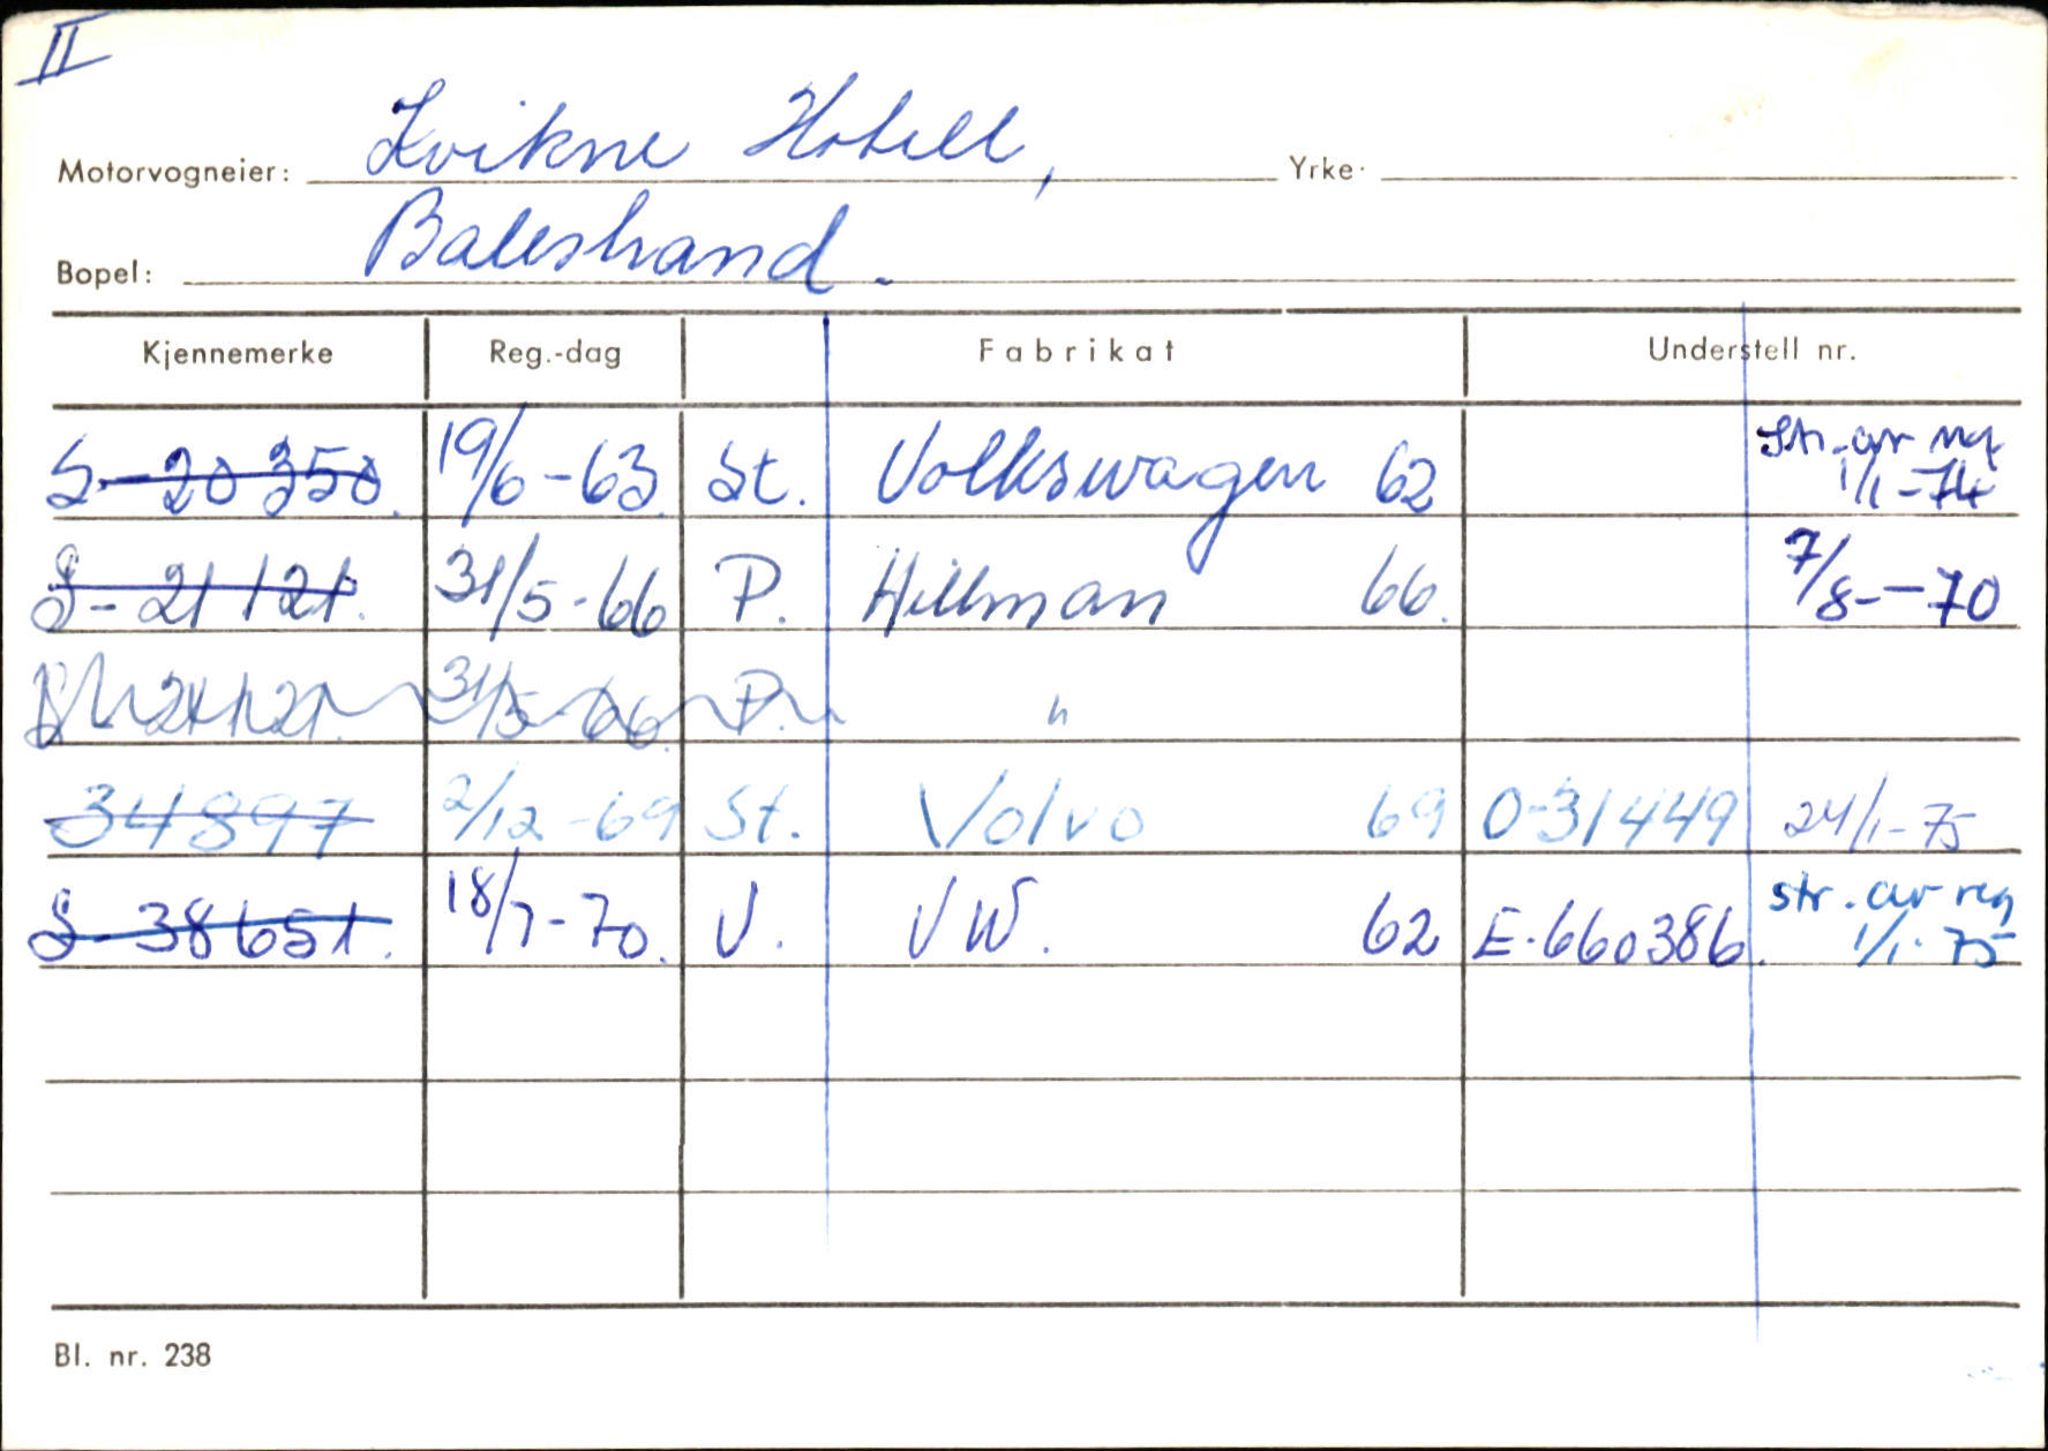 II
Motorvogneier: Kvikne Hotell, Yrke:
Bopel: Balestrand.
Kjennemerke Reg.-dag Fabrikat Understell nr.
S-20350. 19/6-63. St. Volkswagen 62 Str. av reg 1/1-74
S-21121. 31/5-66 P. Hillman 66. 7/8-70
S-21121. 31/5-66. P. "
34897 2/12-69 St. Volvo 69 0-31449 24/1-75
S-38651. 18/7-70. V. VW. 62 E-660386. str. av reg 1/1-75
Bl. nr. 238